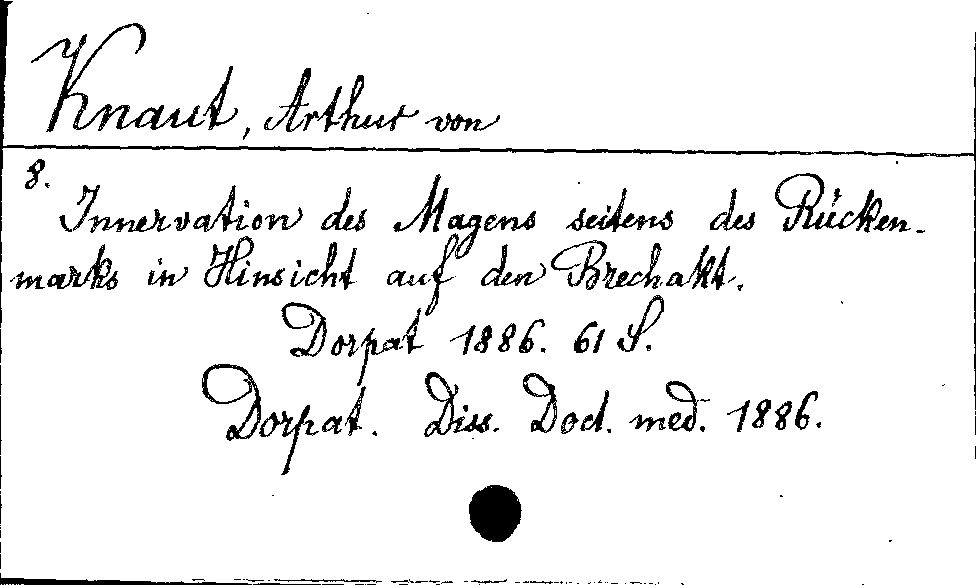 Knaut, Arthur von
8.
Innervation des Magens seitens des Rücken-
marks in Hinsicht auf den Brechakt.
Dorpat 1886. 61 S.
Dorpat. Diss. Doct. med. 1886.